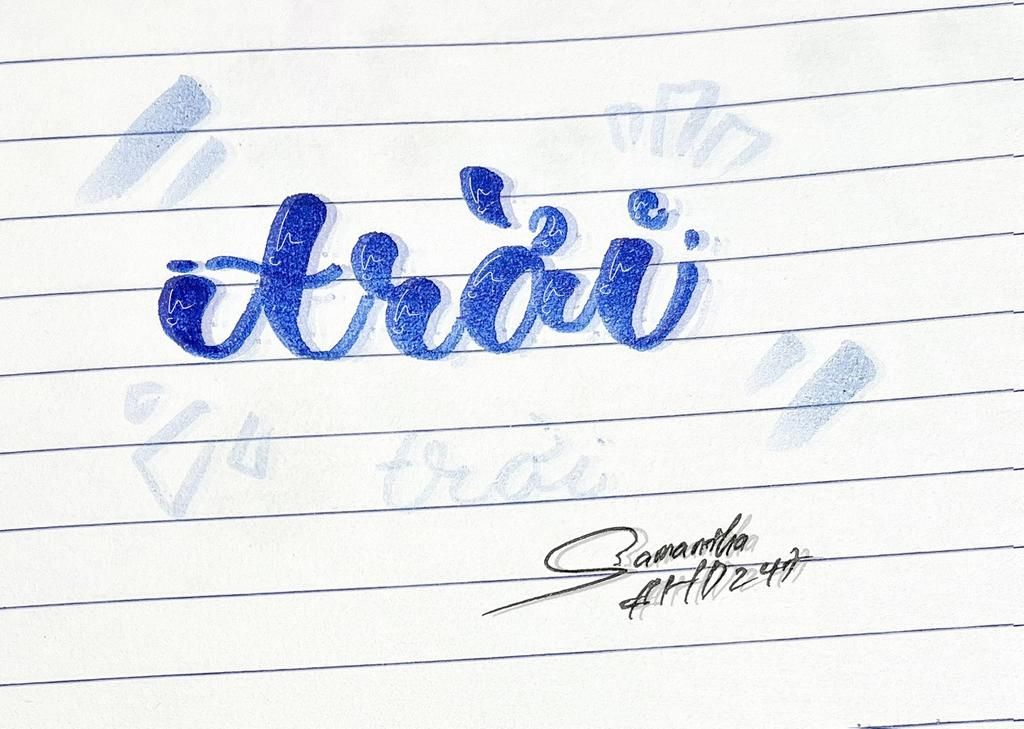 trài
trài
Samantha
#HD247